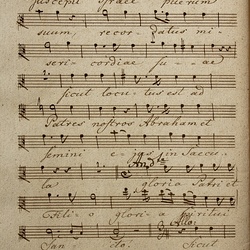 suscepit Israel puerum
suum, recordatus mi-
sericordiae suae
sicut locutus est ad
Patres nostros Abraham et
semini ejus in Saecu-
And.te
la gloria Patri et
Filio gloria Spiritui
All:o
Sancto. Sicut